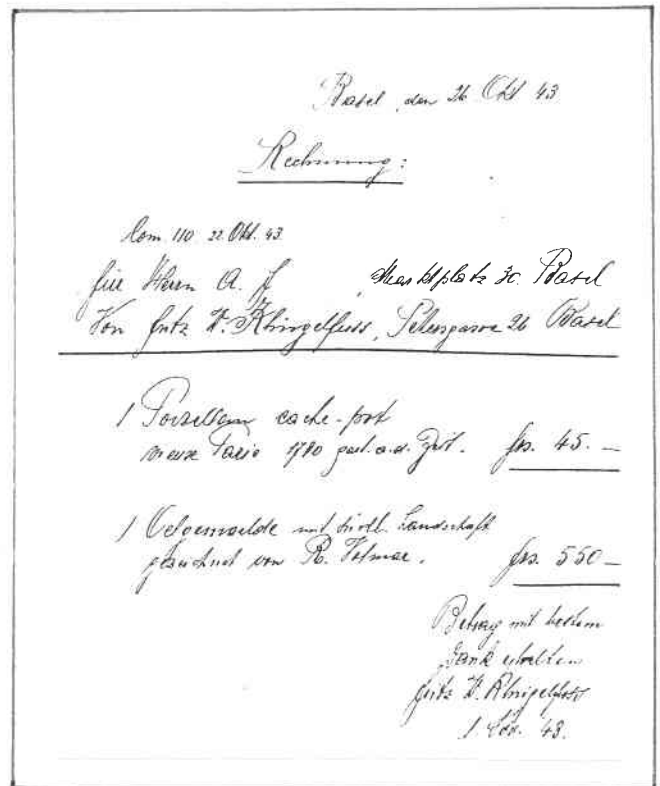 Basel den 26 Okt 43
Rechnung:
Com. 110 22 Okt. 43.
für Herrn A. J
Marktplatz 30. Basel
Von Fritz W. Klingelfuss, 26 Basel
1 Porzellan cache-pot
1780 a.d. Zeit. frs. 45.—
1 Oelgemaelde mit Landschaft
gezeichnet von R. Volmar. frs. 550—
Betrag mit bestem
Dank erhalten
Fritz W. Klingelfuss
1. Nov. 43.